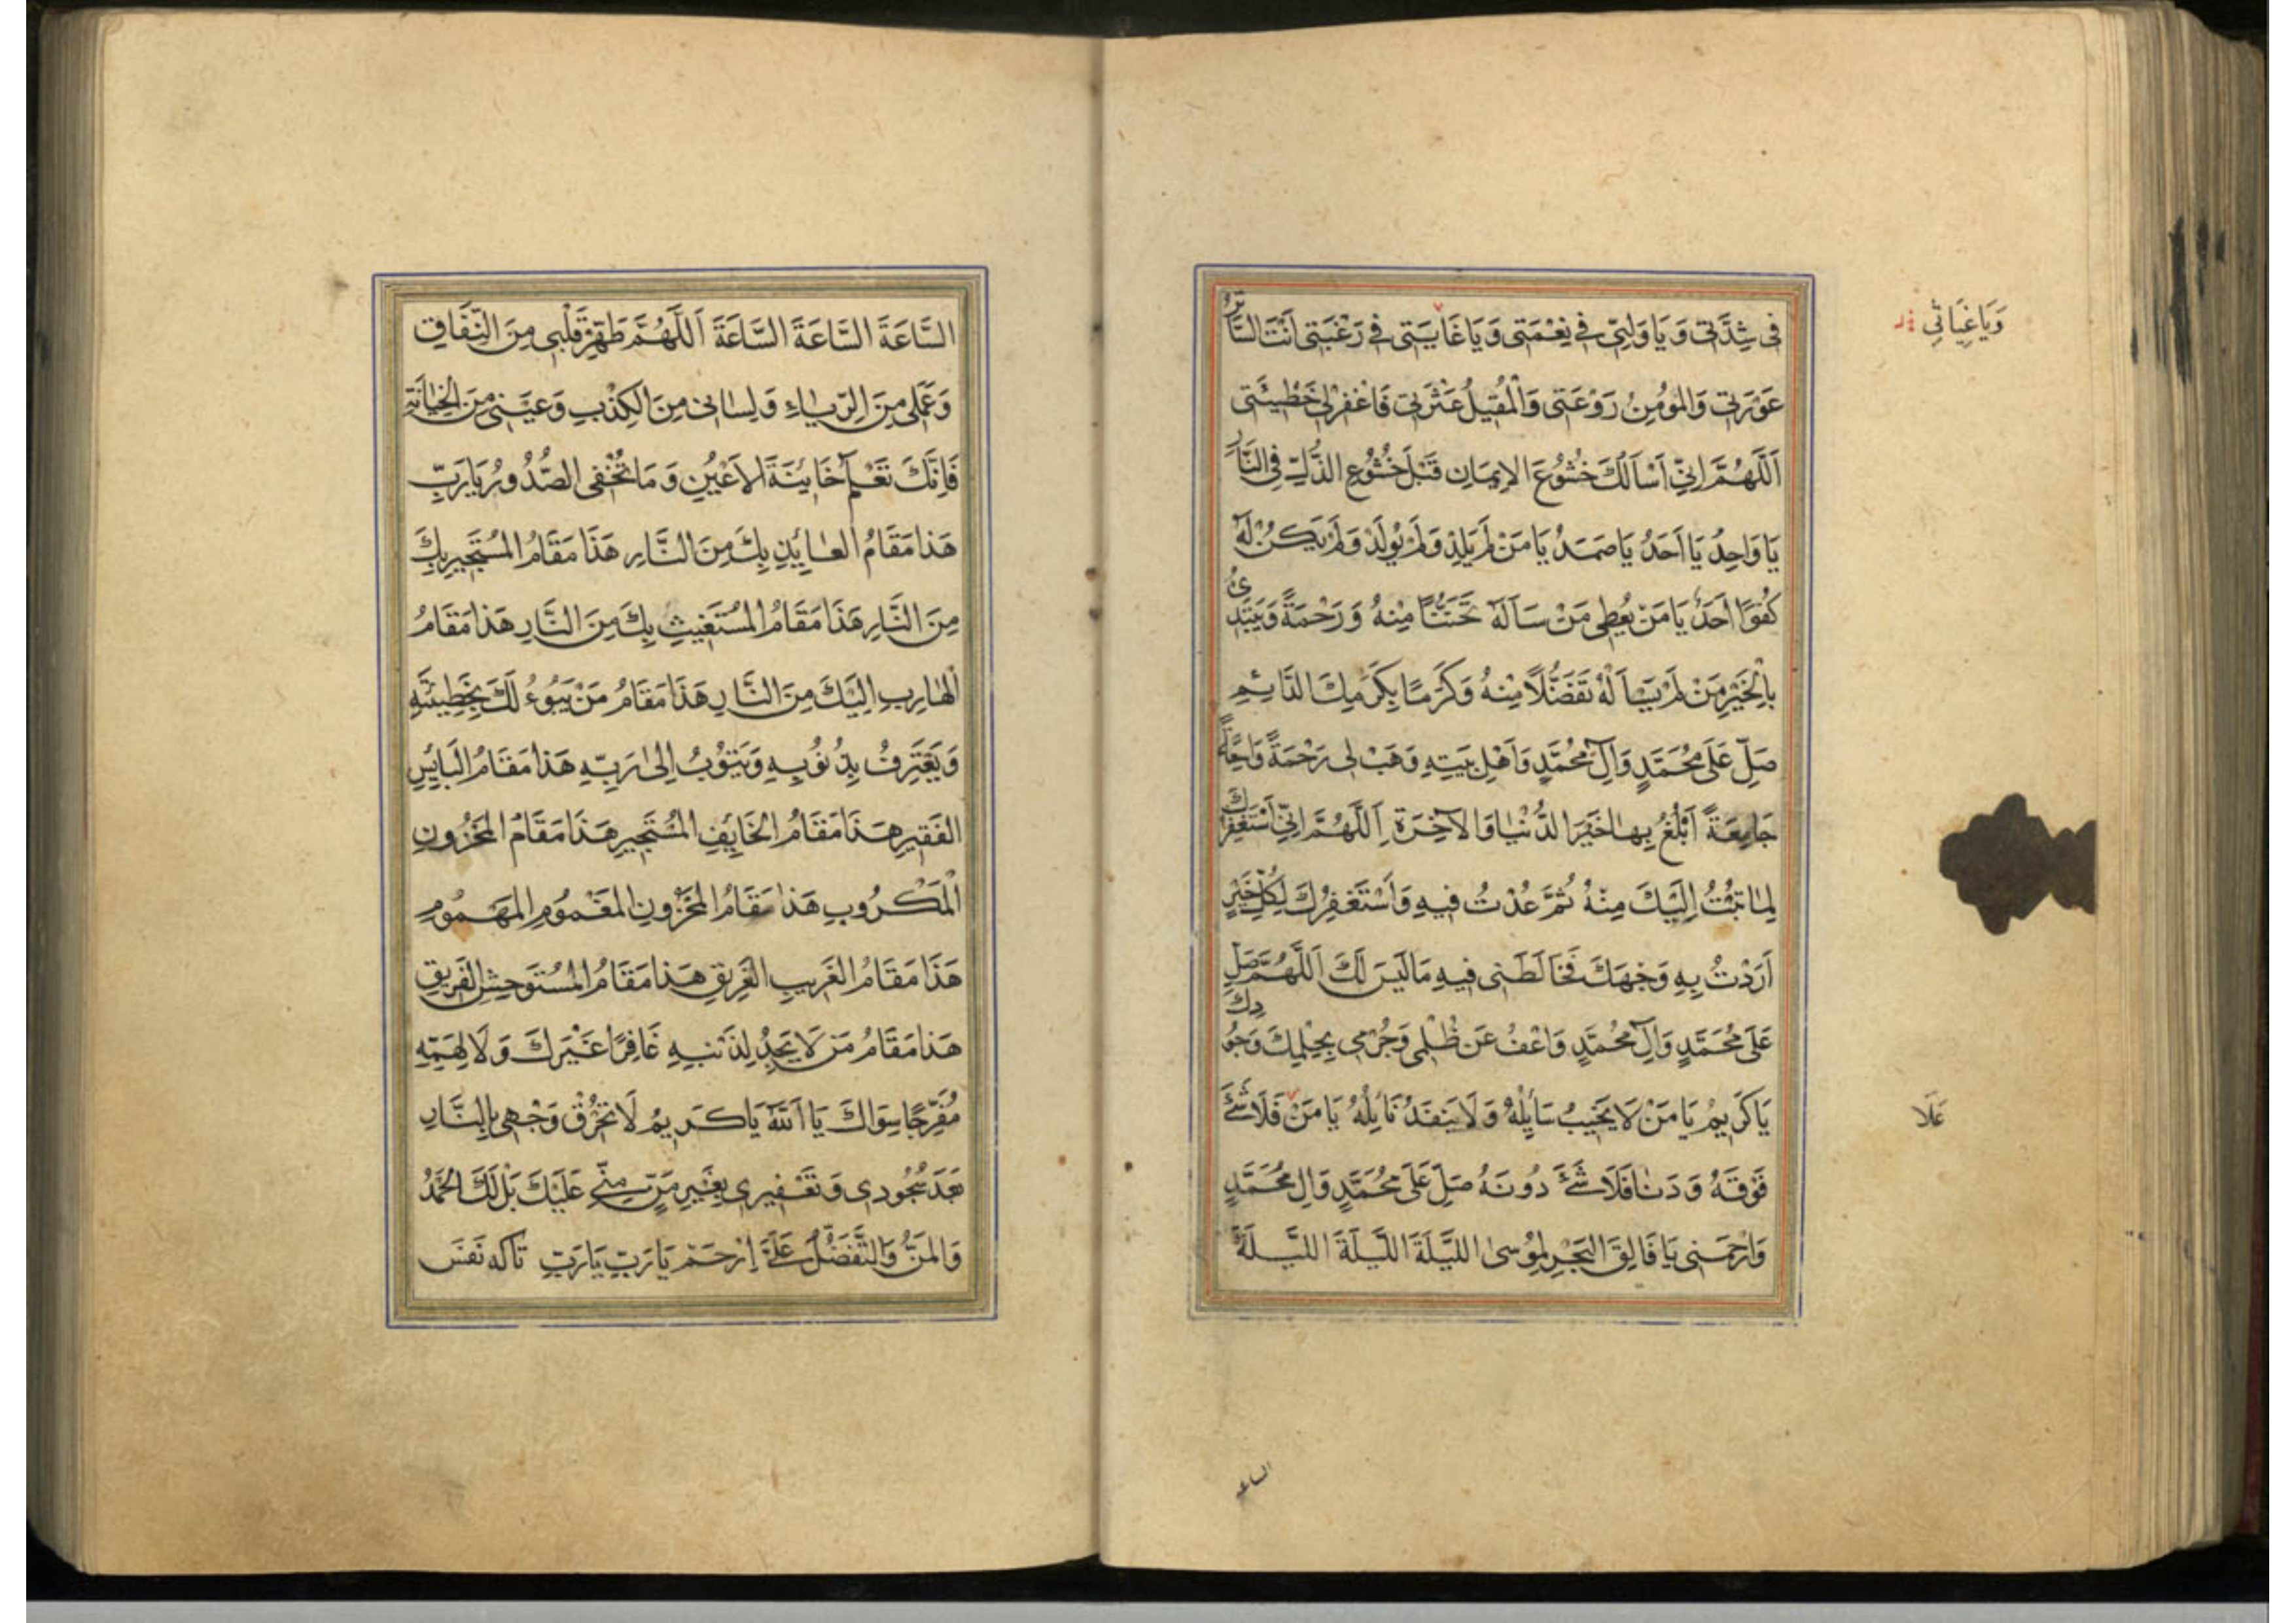 فى شِدَّتى وَ يَا وَلِيّى فى نِعْمَتى وَ يَا غَايَتى فى رَغْبَتى اَنْتَ السَّاتِرُ
عَوْرَتى وَالمُؤمِنُ رَوْعَتى وَالْمُقيلُ عَثْرَتى فَاغْفِرْلى خَطيئَتى
اَللّٰهُمَّ اِنّى اَسْاَلُكَ خُشُوعَ الاِيمَانِ قَبْلَ خُشُوعِ الذُّلِّ فِى النَّارِ
يَا وَاحِدُ يَا اَحَدُ يَا صَمَدُ يَا مَنْ لَمْ يَلِدْ وَلَمْ يُولَدْ وَلَمْ يَكُنْ لَهُ
كُفُوًا اَحَدٌ يَا مَنْ يُعْطى مَنْ سَاَلَهُ تَحَنُّنًا مِنْهُ وَ رَحْمَةً وَ يَبْتَدِئُ
بِالْخَيْرِ مَنْ لَمْ يَسْاَلْهُ تَفَضُّلًا مِنْهُ وَكَرَمًا بِكَرَمِكَ الدَّائِمِ
صَلِّ عَلَى مُحَمَّدٍ وَآلِ مُحَمَّدٍ وَاَهْلِ بَيْتِهِ وَهَبْ لى رَحْمَةً وَاسِعَةً
جَامِعَةً اَبْلُغُ بِهَا خَيْرَ الدُّنْيَا وَالآخِرَةِ اَللّٰهُمَّ اِنّى اَسْتَغْفِرُكَ
لِمَا تُبْتُ اِلَيْكَ مِنْهُ ثُمَّ عُدْتُ فيهِ وَاَسْتَغْفِرُكَ لِكُلِّ خَيْرٍ
اَرَدْتُ بِهِ وَجْهَكَ فَخَالَطَنى فيهِ مَالَيْسَ لَكَ اَللّٰهُمَّ صَلِّ
عَلَى مُحَمَّدٍ وَآلِ مُحَمَّدٍ وَاعْفُ عَنْ ظُلْمى وَجُرْمى بِحِلْمِكَ وَجُودِكَ
يَا كَريمُ يَا مَنْ لَا يَخيبُ سَايِلُهُ وَ لَا يَنْفَدُ نَايِلُهُ يَا مَنْ فَلَا شَئَ
فَوْقَهُ وَ دَنَا فَلَا شَئَ دُونَهُ صَلِّ عَلَى مُحَمَّدٍ وَآلِ مُحَمَّدٍ
وَارْحَمْنى يَا فَالِقَ الْبَحْرِ لِمُوسىٰ اللَّيْلَةَ اللَّيْلَةَ اللَّيْلَةَ
وَيَا غِيَاثى
عَلَا
الساعة
السَّاعَةَ السَّاعَةَ السَّاعَةَ اَللّٰهُمَّ طَهِّرْ قَلْبى مِنَ النِّفَاقِ
وَ عَمَلى مِنَ الرِّيَاءِ وَ لِسَانى مِنَ الكِذْبِ وَعَيْنى مِنَ الخِيَانَةِ
فَاِنَّكَ تَعْلَمُ خَايِنَةَ الاَعْيُنِ وَ مَا تُخْفى الصُّدُورُ يَارَبِّ
هَذَا مَقَامُ العَايِذِ بِكَ مِنَ النَّارِ هَذَا مَقَامُ المُسْتَجيرِ بِكَ
مِنَ النَّارِ هَذَا مَقَامُ المُسْتَغيثِ بِكَ مِنَ النَّارِ هَذَا مَقَامُ
الْهَارِبِ اِلَيْكَ مِنَ النَّارِ هَذَا مَقَامُ مَنْ يَبُوءُ لَكَ بِخَطيئَتِهِ
وَ يَعْتَرِفُ بِذُنُوبِهِ وَيَتُوبُ اِلى رَبِّهِ هَذَا مَقَامُ البَائِسِ
الفَقيرِ هَذَا مَقَامُ الخَايِفِ المُسْتَجيرِ هَذَا مَقَامُ المَحْزُونِ
الْمَكْرُوبِ هَذَا مَقَامُ المَحْزُونِ المَغْمُومِ المَهْمُومِ
هَذَا مَقَامُ الغَريبِ الغَريقِ هَذَا مَقَامُ المُسْتَوحِشِ الفَرِيقِ
هَذَا مَقَامُ مَنْ لَا يَجِدُ لِذَنْبِهِ غَافِرًا غَيْرَكَ وَ لَا لِهَمِّهِ
مُفَرِّجًا سِوَاكَ يَا اَللهُ يَا كَريمُ لَا تُحْرِقْ وَجْهى بِالنَّارِ
بَعْدَ سُجُودى وَ تَعْفيرى بِغَيْرِ مَنٍّ مِنّى عَلَيْكَ بَلْ لَكَ الحَمْدُ
وَ المَنُّ وَ التَّفَضُّلُ عَلَىَّ اِرْحَمْ يَارَبِّ يَارَبِّ تاكه نَفَس